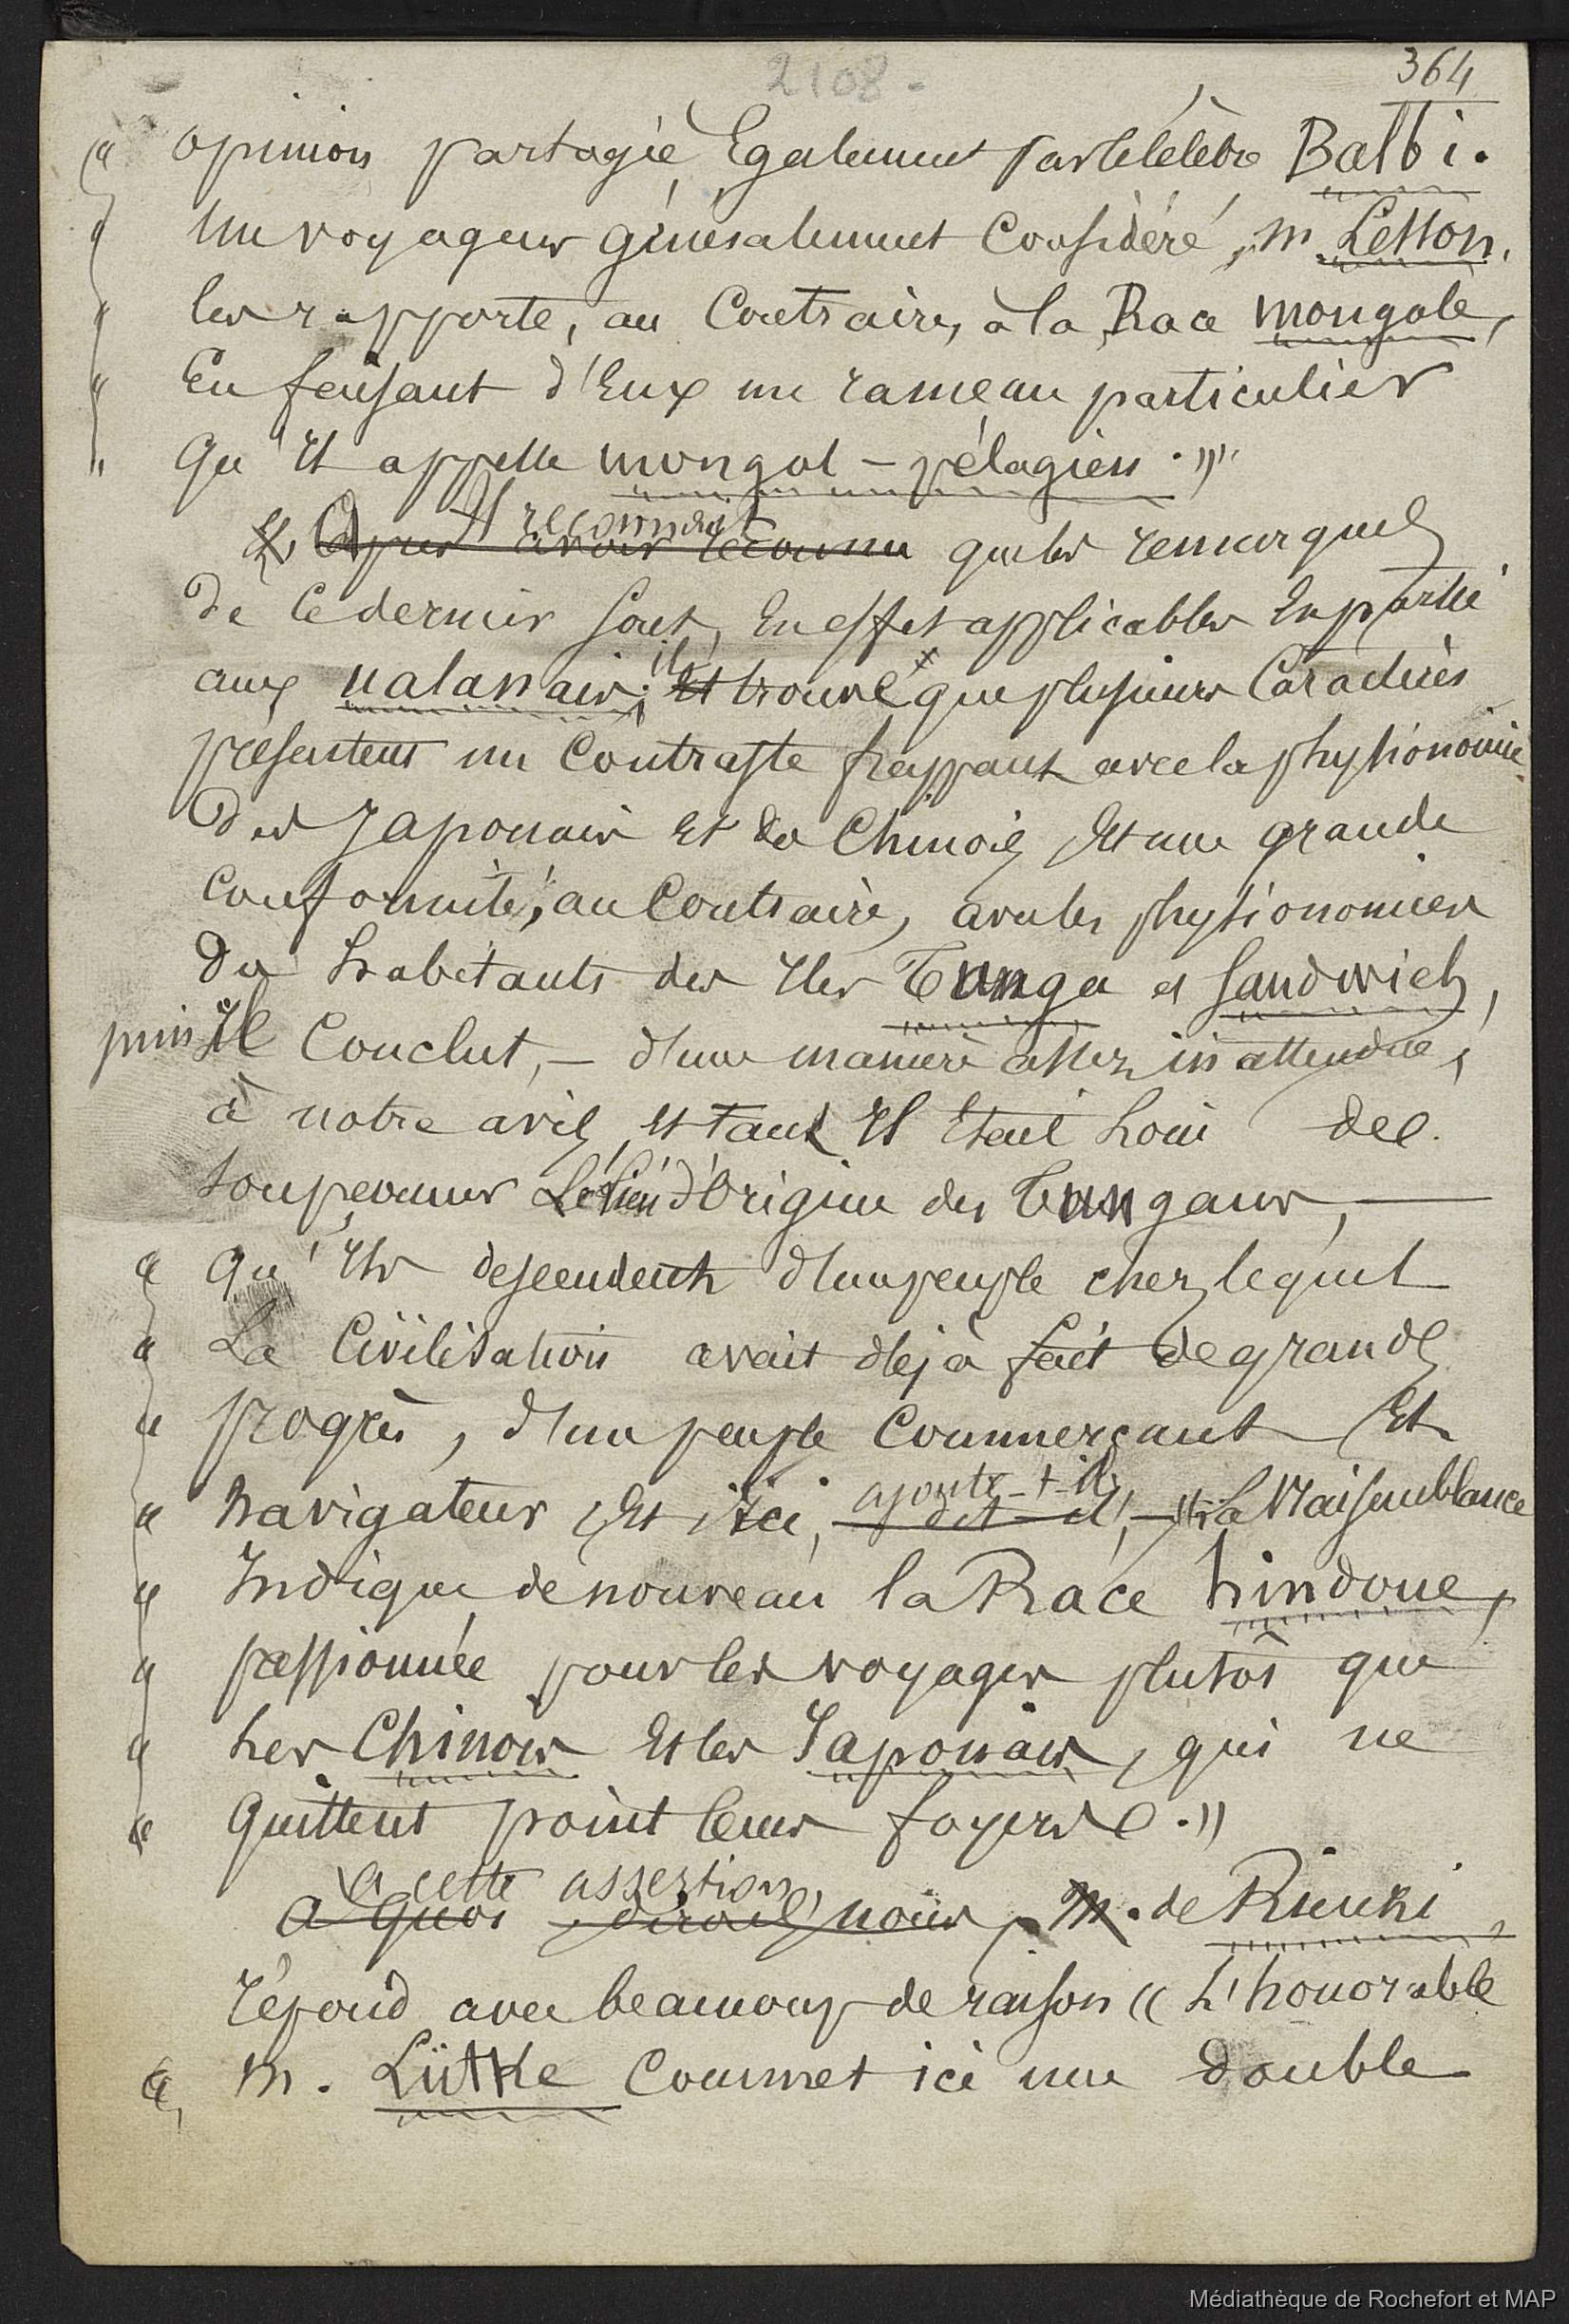 2108.
364
« opinion partagée également par le célèbre Balbi.
« Un voyageur généralement considéré, m. Lesson,
« les rapporte, au contraire, à la Race mongole,
« En faisant d'Eux un rameau particulier
« qu'il appelle mongol-pélagien. »
Il reconnait
Après avoir reconnu que les remarques
de ce dernier sont, En effet applicables En partie
aux ualanais; ils Et trouve que plusieurs Caractères
présentent un Contraste frappant avec la physionomie
des Japonais Et des Chinois, Et une grande
conformité, au Contraire, avec les physionomies
des habitants des Iles Tunga et Sandwich,
puis Il Conclut, — d'une manière assez inattendue,
à notre avis, Et tant Il Etait Loin de
soupçonner Le lieu d'Origine des Tungans, —
« qu'Ils descendent d'un peuple chez lequel
« La Civilisation avait déjà fait de grands
« progrès, d'un peuple Commerçant Et
« navigateur, Et ici, ajoute-t-il, dit-il, — « La Vraisemblance
« Indique de nouveau la Race hindoue,
« passionnée pour les voyages plutôt que
« Les Chinois Et les Japonais, qui ne
« quittent point leurs foyers. »
A cette assertion,
A quoi, dirons nous, M. de Rienzi
répond avec beaucoup de raison « L'honorable
« m. Lütke Commet ici une double
Médiathèque de Rochefort et MAP